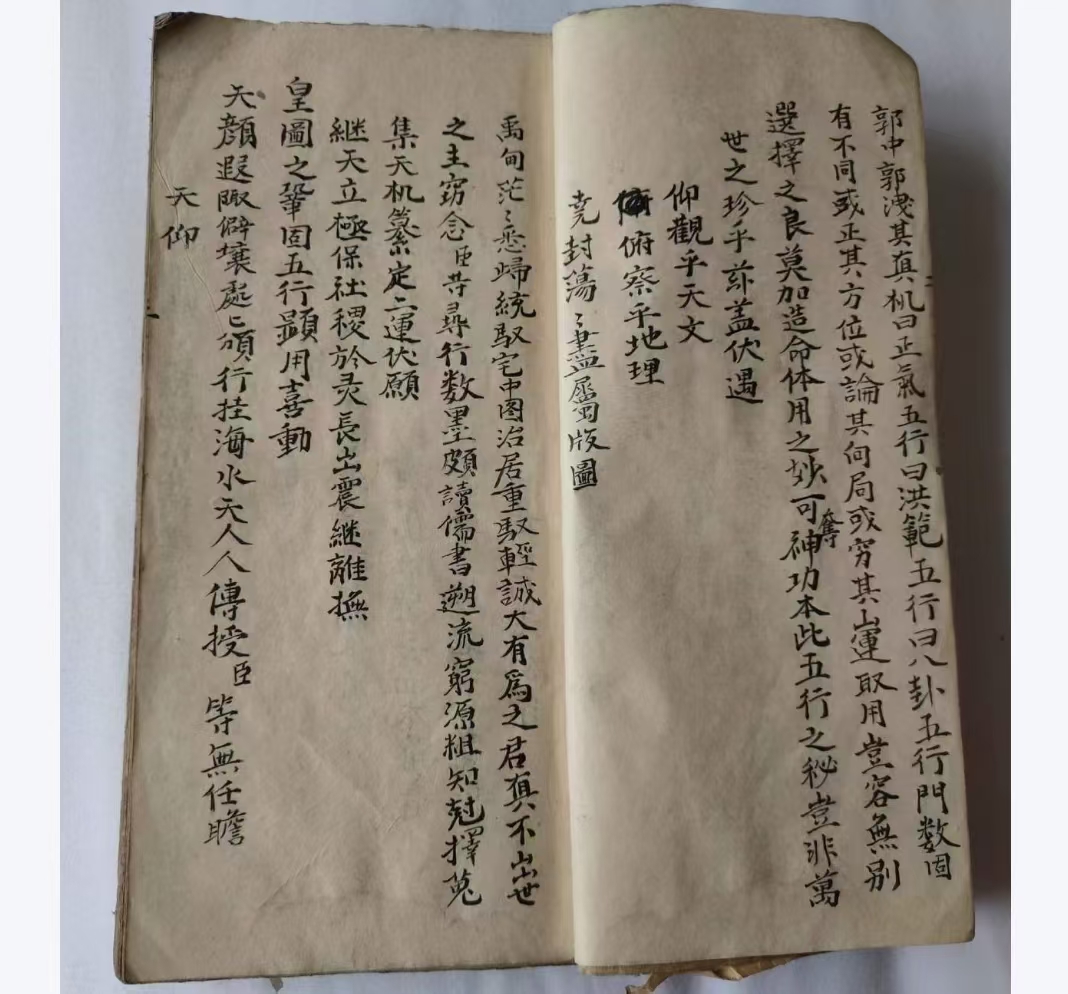 郭中郭洩其真机曰正氣五行曰洪範五行曰八卦五行門数固
有不同或正其方位或論其向局或穷其山運取用豈容無别
選擇之良莫加造命体用之妙可奪神功本此五行之秘豈非萬
世之珍乎茲盖伏遇
仰觀乎天文
俯察乎地理
堯封蕩〻盡屬版圖
禹甸茫〻悉歸統馭宅中图治居重馭輕誠大有爲之君真不出世
之主窃念臣等尋行数墨頗讀儒書遡流窮源粗知尅擇蒐
集天机纂定二運伏願
継天立極保社稷於灵長出震継離撫
皇圖之鞏固五行顕用喜動
天顔遐陬僻壤處〻頒行挂海水天人人傳授臣等無任瞻
天仰